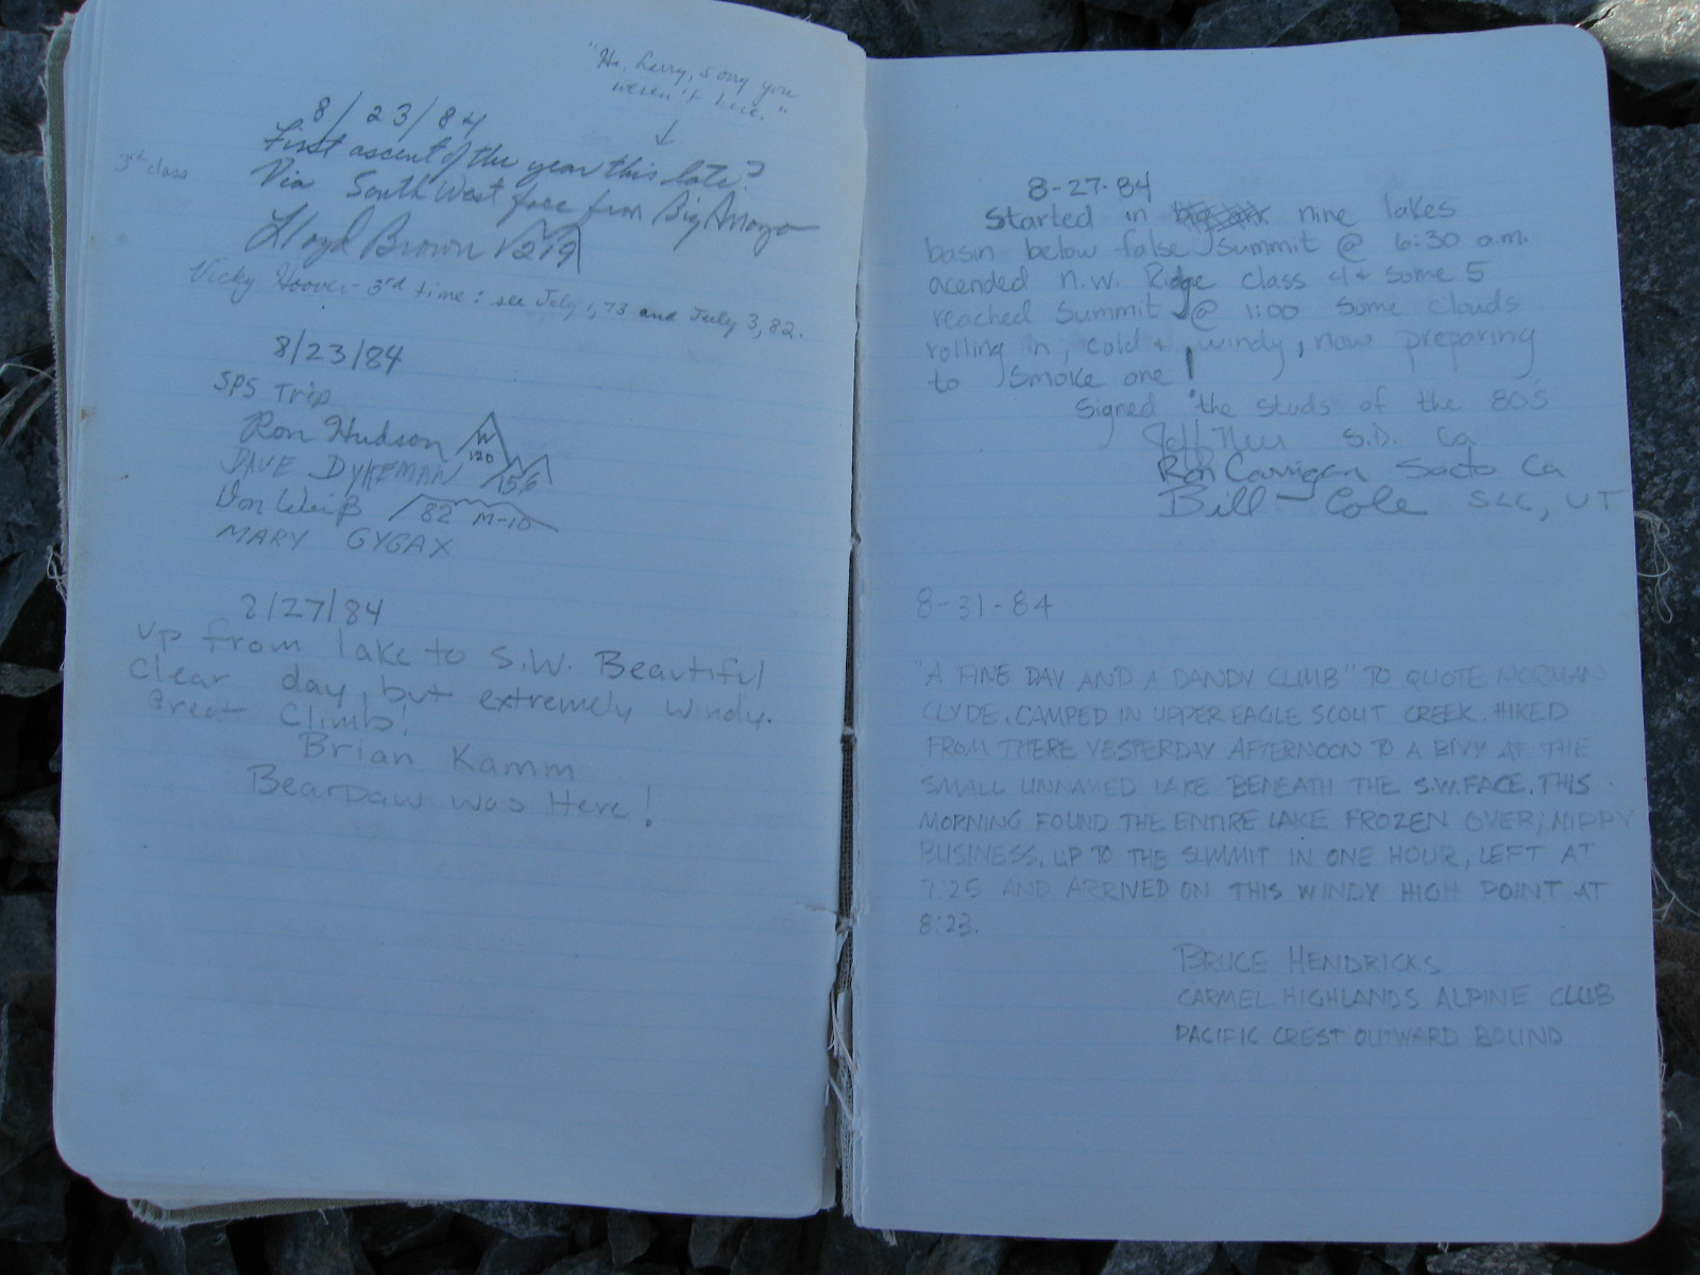 "Hi, Larry, sorry you
weren't here."
8/23/84
First ascent of the year this late?
3rd class
Via South West face from Big Arroyo
Lloyd Brown
Vicky Hoover - 3rd time: see July 1, 73 and July 3, 82.
8/23/84
SPS Trip
Ron Hudson W 120
DAVE DYKEMAN 156
Don Weiß 82 M-10
MARY GYGAX
8/27/84
Up from lake to S.W. Beautiful
Clear day, but extremely windy.
Great Climb!
Brian Kamm
Bearpaw was Here!
8-27-84
Started in nine lakes
basin below false summit @ 6:30 a.m.
acended N.W. Ridge class 4 + some 5
reached Summit @ 1:00 some clouds
rolling in, cold + windy, now preparing
to smoke one!
Signed the studs of the 80's
Jeff S.D. Ca
Ron Carrigan Sacto Ca
Bill Cole SLC, UT
8-31-84
"A FINE DAY AND A DANDY CLIMB" TO QUOTE NORMAN
CLYDE. CAMPED IN UPPER EAGLE SCOUT CREEK. HIKED
FROM THERE YESTERDAY AFTERNOON TO A BIVY AT THE
SMALL UNNAMED LAKE BENEATH THE S.W. FACE. THIS
MORNING FOUND THE ENTIRE LAKE FROZEN OVER; NIPPY
BUSINESS. UP TO THE SUMMIT IN ONE HOUR, LEFT AT
7:25 AND ARRIVED ON THIS WINDY HIGH POINT AT
8:23.
BRUCE HENDRICKS
CARMEL HIGHLANDS ALPINE CLUB
PACIFIC CREST OUTWARD BOUND